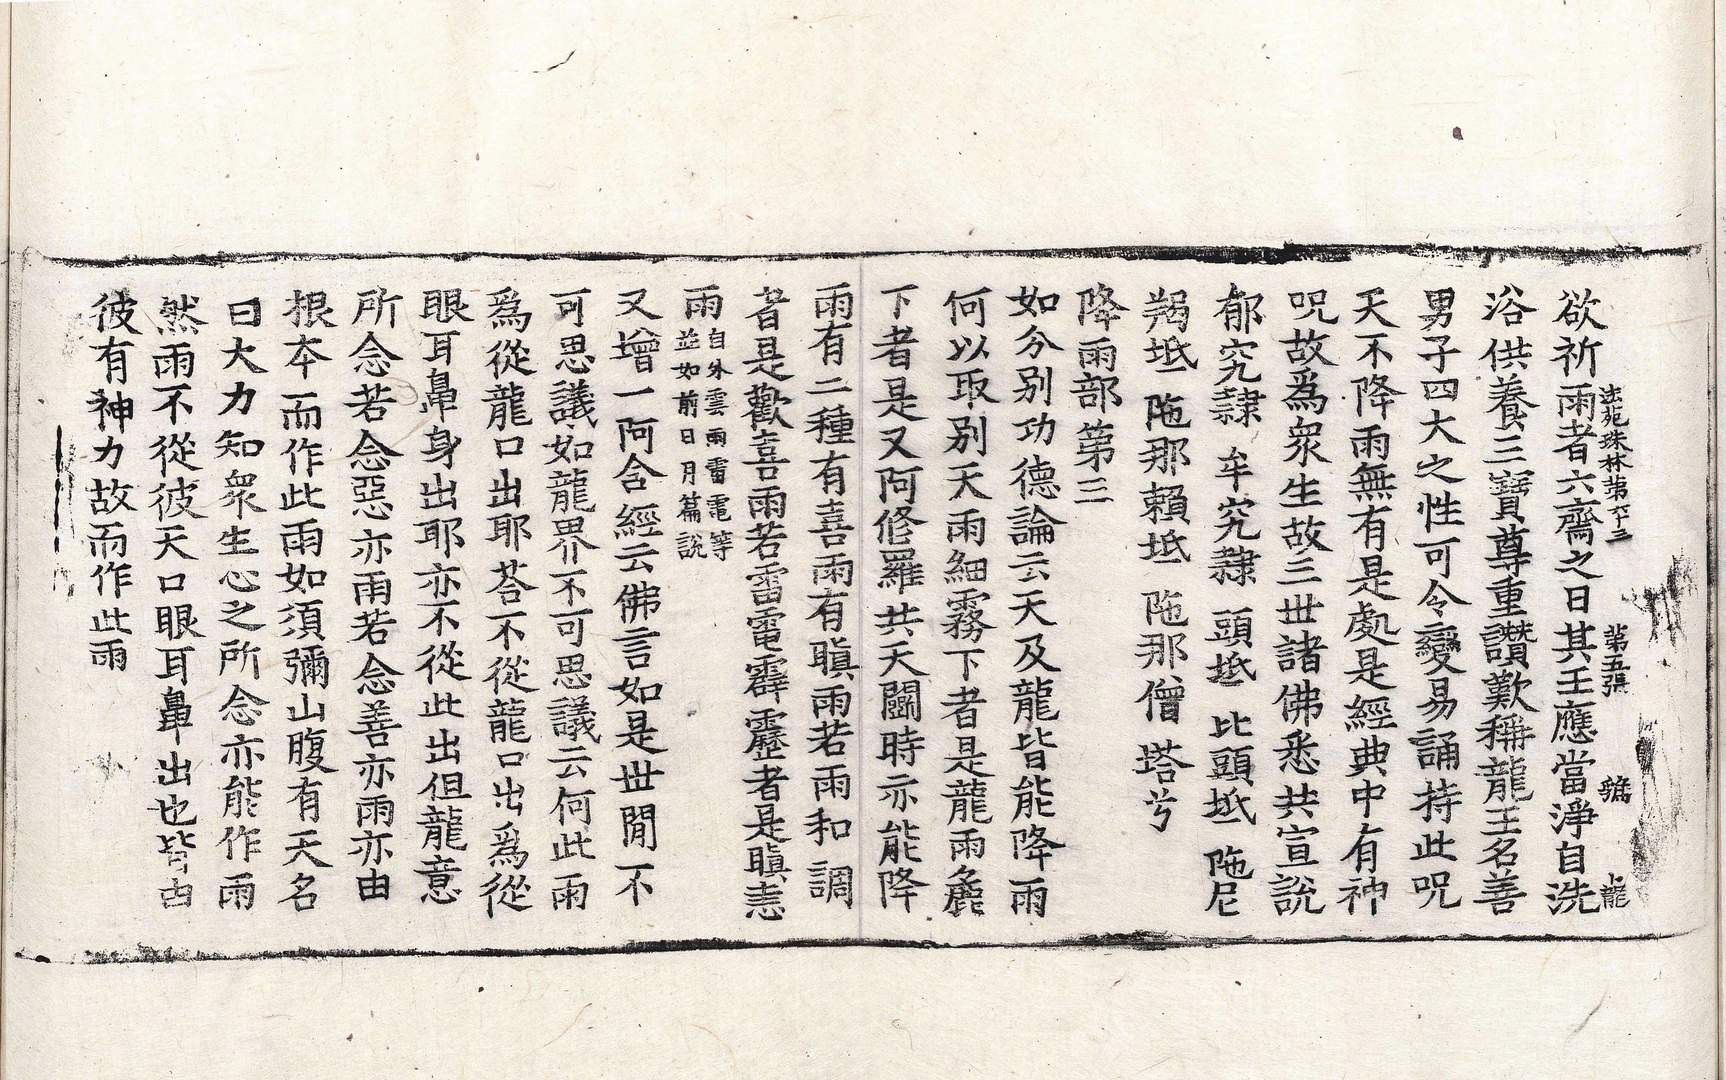 法苑珠林第六十三　第五張　號　龍
欲祈雨者六齋之日其王應當淨自洗
浴供養三寶尊重讚歎稱龍王名善
男子四大之性可令變易誦持此呪
天不降雨無有是處是經典中有神
呪故爲衆生故三世諸佛悉共宣說
郁究隸　牟究隸　頭坻　比頭坻　陁尼
羯坻　陁那賴坻　陁那僧塔兮
降雨部第三
如分別功德論云天及龍皆能降雨
何以取別天雨細霧下者是龍雨麁
下者是又阿修羅共天鬪時亦能降
雨有二種有喜雨有瞋雨若雨和調
者是歡喜雨若雷電霹靂者是瞋恚
雨自外雲雨雷電等
並如前日月篇說
又增一阿含經云佛言如是世閒不
可思議如龍界不可思議云何此雨
爲從龍口出耶荅不從龍口出爲從
眼耳鼻身出耶亦不從此出但龍意
所念若念惡亦雨若念善亦雨亦由
根本而作此雨如須彌山腹有天名
曰大力知衆生心之所念亦能作雨
然雨不從彼天口眼耳鼻出也皆由
彼有神力故而作此雨